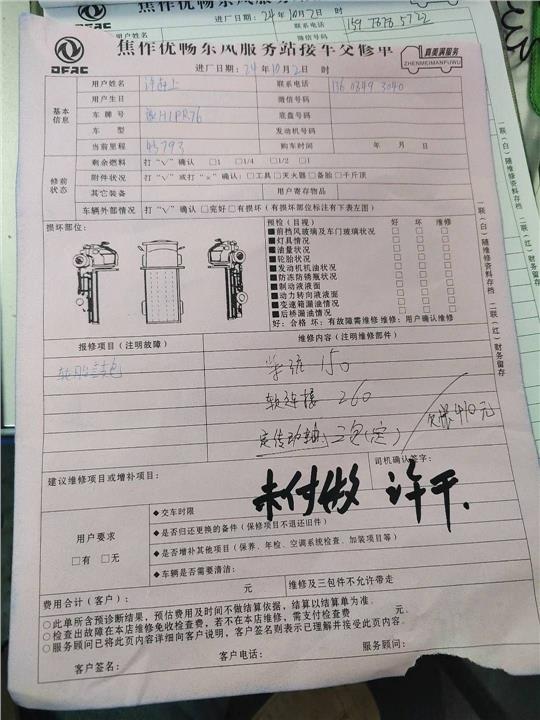 进厂日期: 24年10月2日 时
微信号码
DFAC
焦作优畅东风服务站接车交修单
真美满服务
ZHENMEIMANFUWU
进厂日期: 24年10月2日 时
基本信息
用户姓名 联系电话 136 0349 3040
用户生日 微信号码
车牌号 底盘号码
车 型 发动机号码
当前里程 45793 购车时间 年 月 日
修前状态
剩余燃料 打“√”确认 □1 □1/4 □1/2 □1
附件状况 打“√”或打“×”确认: □工具 □灭火器 □备胎 □千斤顶
其它装备 用户寄存物品
车辆外部情况 打“√”确认 □完好 □有损坏 (有损坏部位标注有下表左图)
损坏部位: 预检(目视) 好 坏 维修
■前挡风玻璃及车门玻璃状况 □ □ □
■灯具情况 □ □ □
■油量状况 □ □ □
■轮胎状况 □ □ □
■发动机机油状况 □ □ □
■防冻防锈瓶状况 □ □ □
■制动液液面 □ □ □
■动力转向液液面 □ □ □
■变速箱漏油情况 □ □ □
■后桥漏油情况 □ □ □
好: 合格 坏: 有故障需维修 维修: 用户确认维修
报修项目(注明故障) 维修内容(注明维修部件)
轮胎鼓包 150
软连接 260
欠账410元
建议维修项目或增补项目: 司机确认签字:
未付做 许平.
用户要求
□有 □无
◆交车时限
◆是否归还更换的备件(保修项目不退还旧件)
◆是否增补其他项目(保养、年检、空调系统检查、加装项目等)
◆车辆是否需要清洁:
费用合计(客户): 元 维修及三包件不允许带走
○此单所含预诊断结果,预估费用及时间不做结算依据,结算以结算单为准.
○检查出故障在本店维修免收检查费,若不在本店维修,需支付检查费 元.
○服务顾问已将此页内容详细向客户说明,客户签名则表示已理解并接受此页内容.
客户签名: 客户电话: 服务顾问:
一联(白)随维修资料存档 二联(红)财务留存